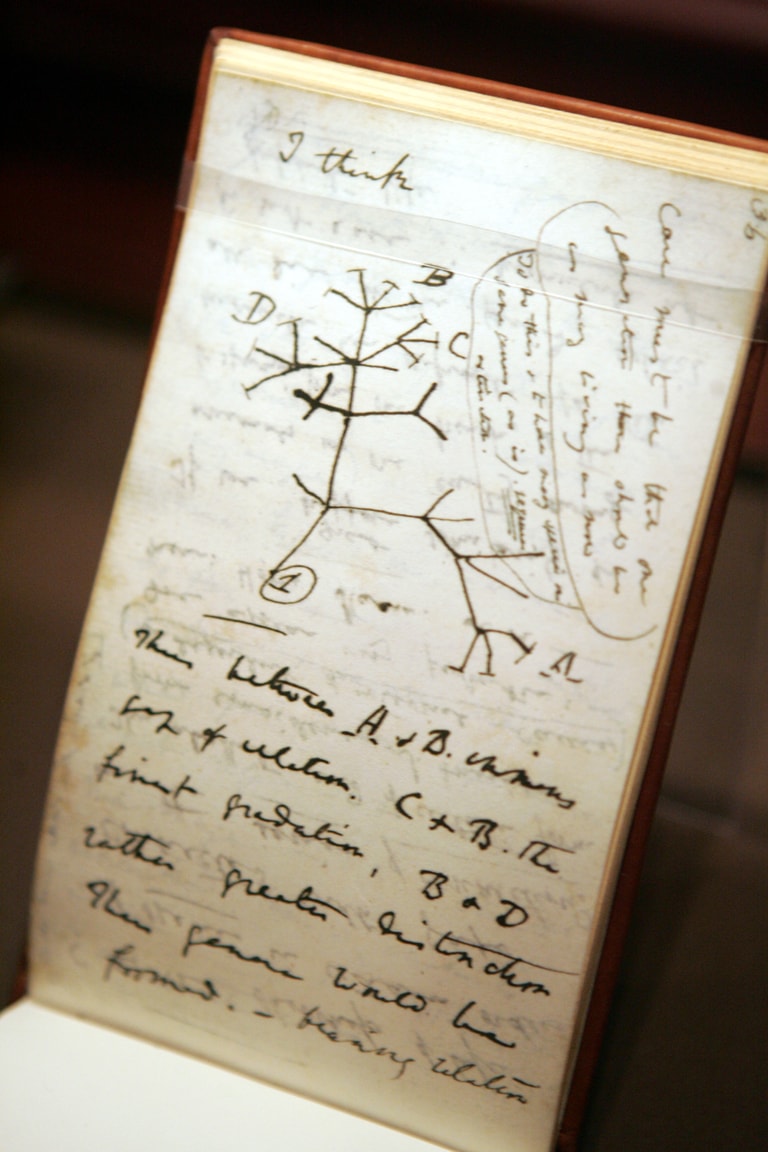 I think
36
Case must be that one
generation then should be
as many living as now
To do this & to have many species in
same genus (as is). requires
extinction.
B
D
C
1
A
Thus between A. & B. immense
gap of relation. C & B. The
finest gradation, B & D
rather greater distinction
Thus genera would be
formed. — bearing relation